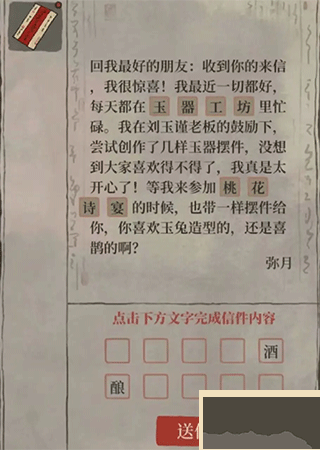 回我最好的朋友：收到你的来信
，我很惊喜！我最近一切都好，
每天都在玉器工坊里忙
碌。我在刘玉谨老板的鼓励下，
尝试创作了几样玉器摆件，没想
到大家喜欢得不得了，我真是太
开心了！等我来参加桃花
诗宴的时候，也带一样摆件给
你，你喜欢玉兔造型的，还是喜
鹊的啊？
弥月
点击下方文字完成信件内容
酒
酿
送